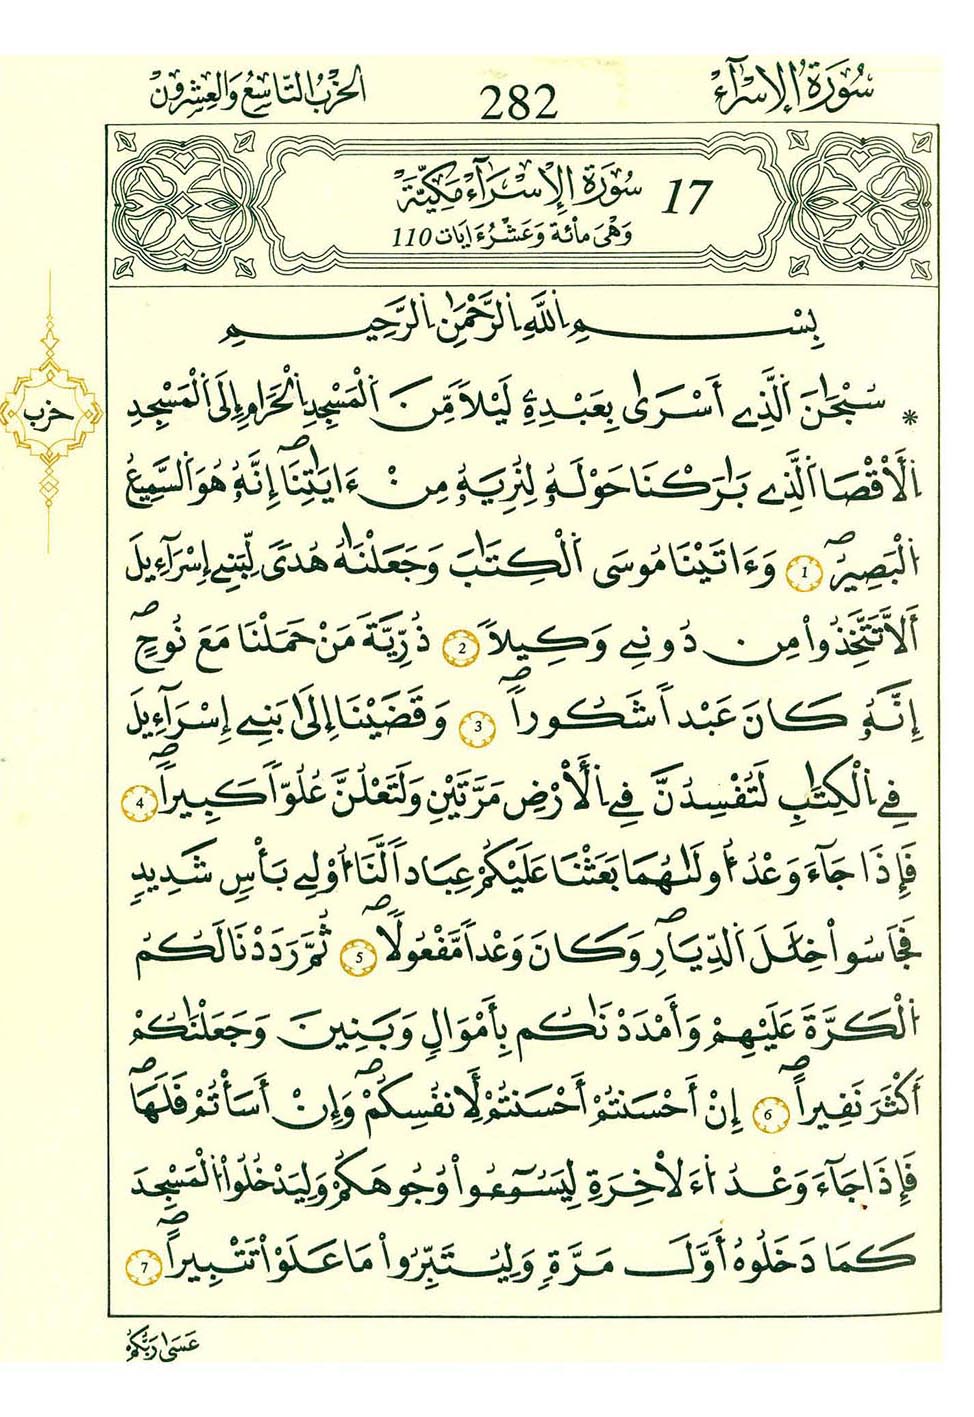 سُورَةُ الإِسْرَآءِ 282 الحِزْبُ التَّاسِعُ وَالعِشْرُونَ
17 سُورَةُ الإِسْرَآءِ مَكِّيَّةٌ
وَهْيَ مِائَةٌ وَعَشْرُ ءَايَاتٍ 110
بِسْمِ اِللَّهِ اِلرَّحْمَٰنِ اِلرَّحِيمِ
* سُبْحَٰنَ اَلَّذِےٓ أَسْرَىٰ بِعَبْدِهِۦ لَيْلاً مِّنَ اَلْمَسْجِدِ اِلْحَرَامِ إِلَى اَلْمَسْجِدِ
حزب
اِلْأَقْصَا اَلَّذِے بَٰرَكْنَا حَوْلَهُۥ لِنُرِيَهُۥ مِنْ ءَايَٰتِنَآۖ إِنَّهُۥ هُوَ اَلسَّمِيعُ
اُلْبَصِيرُۖ 1 وَءَاتَيْنَا مُوسَى اَلْكِتَٰبَ وَجَعَلْنَٰهُ هُدىً لِّبَنِےٓ إِسْرَآءِيلَ
أَلاَّ تَتَّخِذُواْ مِن دُونِے وَكِيلاًۖ 2 ذُرِّيَّةَ مَنْ حَمَلْنَا مَعَ نُوحٍۖ
إِنَّهُۥ كَانَ عَبْداً شَكُوراًۖ 3 وَقَضَيْنَا إِلَىٰ بَنِےٓ إِسْرَآءِيلَ
فِے اِلْكِتَٰبِ لَتُفْسِدُنَّ فِے اِلْأَرْضِ مَرَّتَيْنِ وَلَتَعْلُنَّ عُلُوّاً كَبِيراًۖ 4
فَإِذَا جَآءَ وَعْدُ أُولَىٰهُمَا بَعَثْنَا عَلَيْكُمْ عِبَاداً لَّنَا أُوْلِے بَأْسٍ شَدِيدٍ
فَجَاسُواْ خِلَٰلَ اَلدِّيَارِۖ وَكَانَ وَعْداً مَّفْعُولاًۖ 5 ثُمَّ رَدَدْنَا لَكُمُ
اُلْكَرَّةَ عَلَيْهِمْ وَأَمْدَدْنَٰكُم بِأَمْوَالٍ وَبَنِينَ وَجَعَلْنَٰكُمْ
أَكْثَرَ نَفِيراًۖ 6 إِنْ أَحْسَنتُمْ أَحْسَنتُمْ لِأَنفُسِكُمْۖ وَإِنْ أَسَأْتُمْ فَلَهَاۖ
فَإِذَا جَآءَ وَعْدُ اُءَلْأَخِرَةِ لِيَسُـࣳـُٔواْ وُجُوهَكُمْ وَلِيَدْخُلُواْ اُلْمَسْجِدَ
كَمَا دَخَلُوهُ أَوَّلَ مَرَّةٍ وَلِيُتَبِّرُواْ مَا عَلَوْاْ تَتْبِيراًۖ 7
عَسَىٰ رَبُّكُمْ